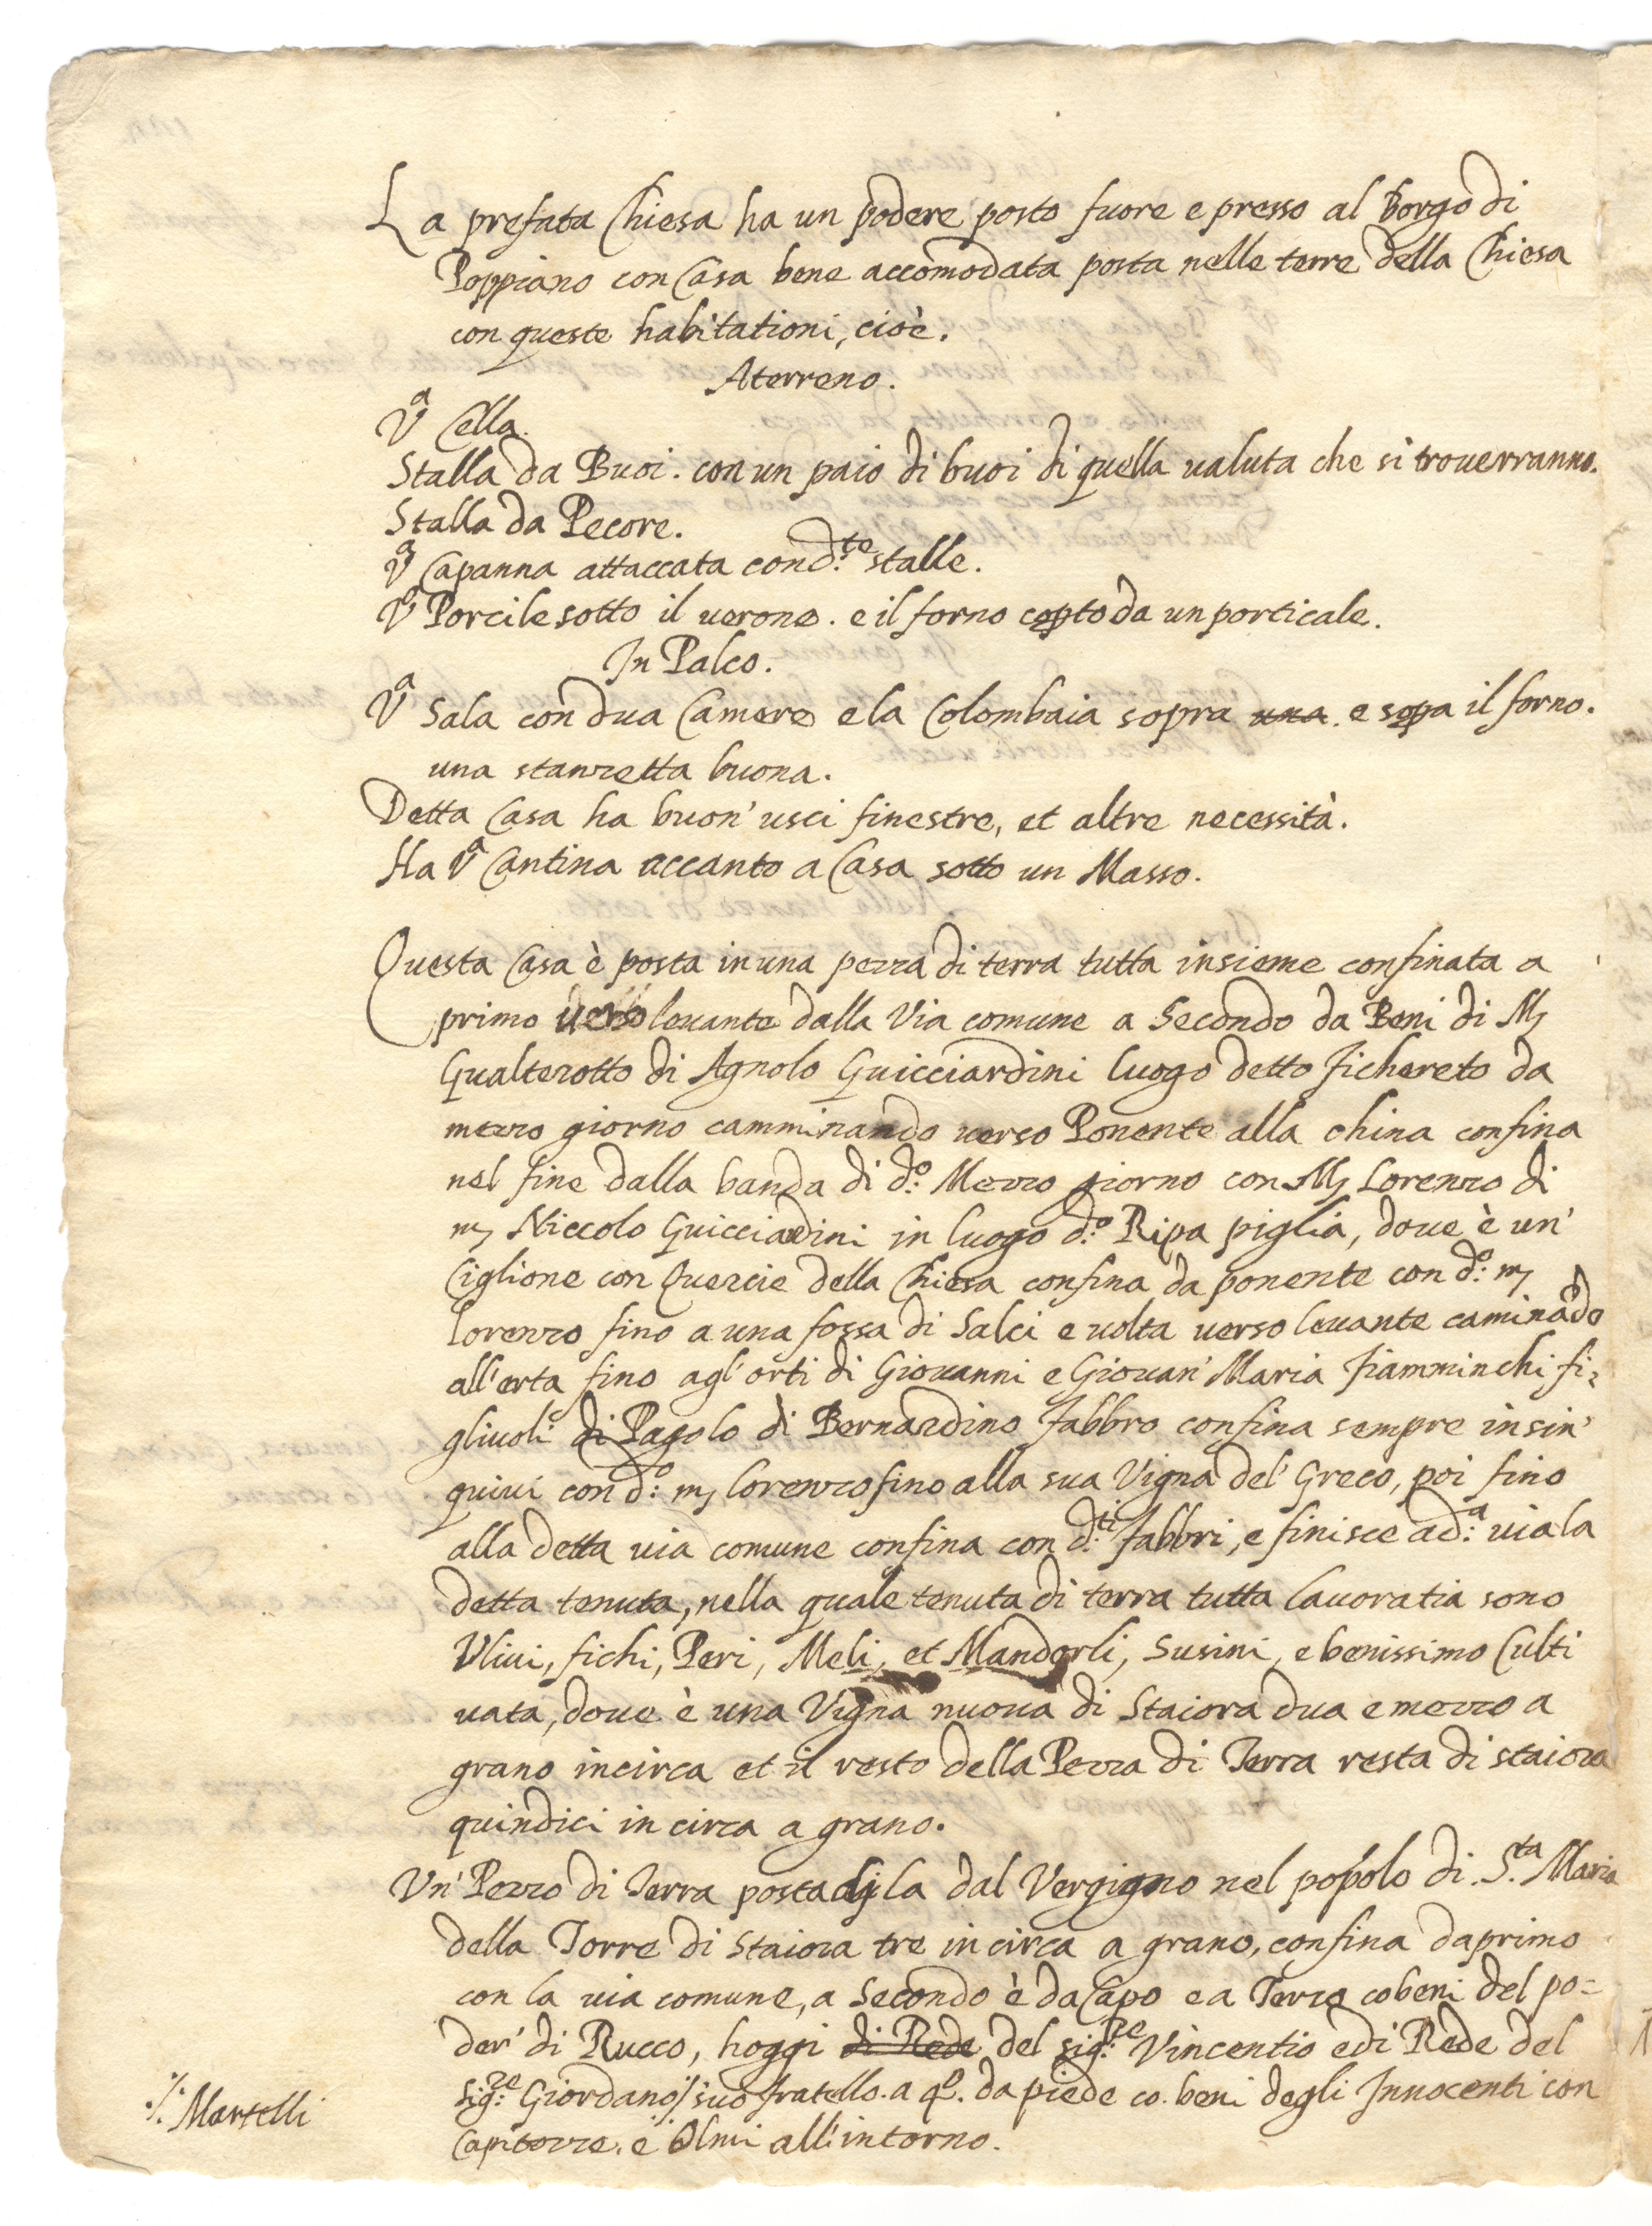 La prefata Chiesa ha un podere posto fuore e presso al Borgo di
Poppiano con Casa bene accomodata posta nelle terre della Chiesa
con queste habitationi, cioè.
A terreno.
Vª Cella.
Stalla da Buoi. con un paio di buoi di quella ualuta che si trouerranno.
Stalla da Pecore.
Vª Capanna attaccata con d.te stalle.
Vº Porcile sotto il uerone. e il forno copto da un porticale.
In Palco.
Vª Sala con dua Camere e la Colombaia sopra una. e sopa il forno.
una stanzetta buona.
Detta Casa ha buon' usci finestre, et altre necessità.
Ha Vª Cantina accanto a Casa sotto un Masso.
Questa Casa è posta in una pezza di terra tutta insieme confinata a
primo uerso leuante dalla Via comune a Secondo da Beni di Mʃ
Gualterotto di Agnolo Guicciardini luogo detto Fichereto da
mezzo giorno camminando uerso Ponente alla china confina
nel fine dalla banda di d.º Mezzo giorno con Mʃ Lorenzo di
mʃ Niccolo Guicciadini in luogo d.º Ripa piglia, doue è un'
Ciglione con Quercie della Chiesa confina da ponente con d.º mʃ
Lorenzo fino a una fossa di Salci e uolta uerso leuante caminādo
all'erta fino agl'orti di Giouanni e Giouan' Maria Fiamminchi fi=
gliuoli di Pagolo di Bernardino Fabbro confina sempre insin'
quiui con d.º mʃ Lorenzo fino alla sua Vigna del Greco, poi fino
alla detta uia comune confina con d.ti Fabbri, e finisce a d.ª uia la
detta tenuta, nella quale tenuta di terra tutta lauoratia sono
Vliui, fichi, Peri, Meli, et Mandorli, Susini, e benissimo Culti
uata, doue è una Vigna nuoua di Staiora dua e mezzo a
grano incirca et il resto della Pezza di Terra resta di staiora
quindici in circa a grano.
Un' Pezzo di Terra posta di la dal Vergigno nel popolo di S.ta Maria
della Torre di Staiora tre in circa a grano, confina da primo
con la uia comune, a Secondo è da Capo e a Terzo co beni del po=
der' di Rucco, hoggi di Rede del sig.re Vincentio e di Rede del
sig.re Giordano ·/· suo fratello. a q.º da piede co. beni degli Innocenti con
·/· Martelli
Capitozze. e Olmi all'intorno.